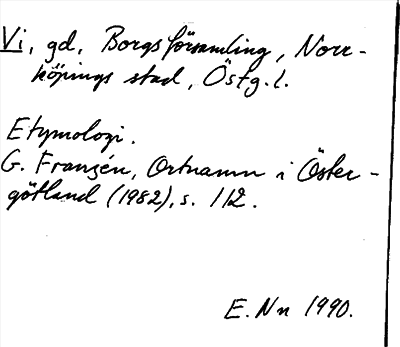 Vi, gd, Borgs församling, Norr-
köpings stad, Östg. l.
Etymologi.
G. Franzén, Ortnamn i Öster-
götland (1982), s. 112.
E. Nn 1990.